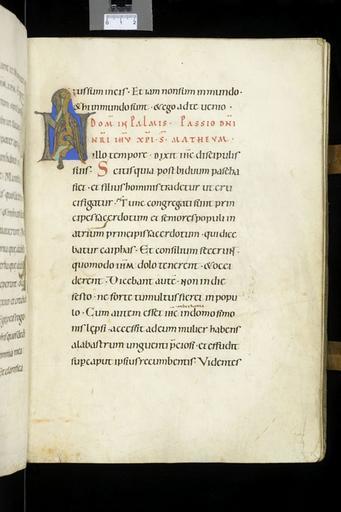 sussum in eis. Et iam non sum in mundo.
& hi in mundo sunt. & ego ad te venio.
DOM IN PALMIS. PASSIO DNI
NRI IHU XPI. S. MATHEUM.
IN illo tempore. dixit ihc discipulis
suis. Scitis quia post biduum pascha
fiet. et filius hominis tradetur ut cru
cifigatur. Tunc congregati sunt prin
cipes sacerdotum et seniores populi in
atrium principis sacerdotum. qui dice
batur caiphas. Et consilium fecerunt.
quomodo ihm dolo tenerent. & occi
derent. Dicebant aute. non in die
festo. ne forte tumultus fieret in popu
lo. Cum autem esset ihc in domo simo
nis lepsi. accessit ad eum mulier habens
alabastrum unguenti pciosi. et effudit
super caput ipsius recumbentis. Videntes